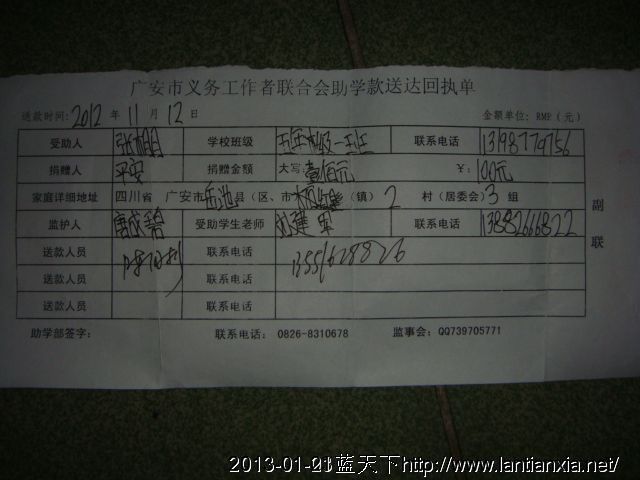 广安市义务工作者联合会助学款送达回执单
送款时间: 2012 年 11 月 12 日 金额单位: RMB (元)
受助人 学校班级 联系电话 13198779756
捐赠人 平安 捐赠金额 大写: 壹佰元 ¥: 100元
家庭详细地址 四川省 广安市 岳池 县(区、市 (镇) 2 村(居委会) 3 组
监护人 唐成碧 受助学生老师 刘建军 联系电话 13882666822
送款人员 联系电话 13551628826
送款人员 联系电话
送款人员 联系电话
副联
助学部签字: 联系电话: 0826-8310678 监事会: QQ739705771
蓝天下http://www.lantianxia.net/